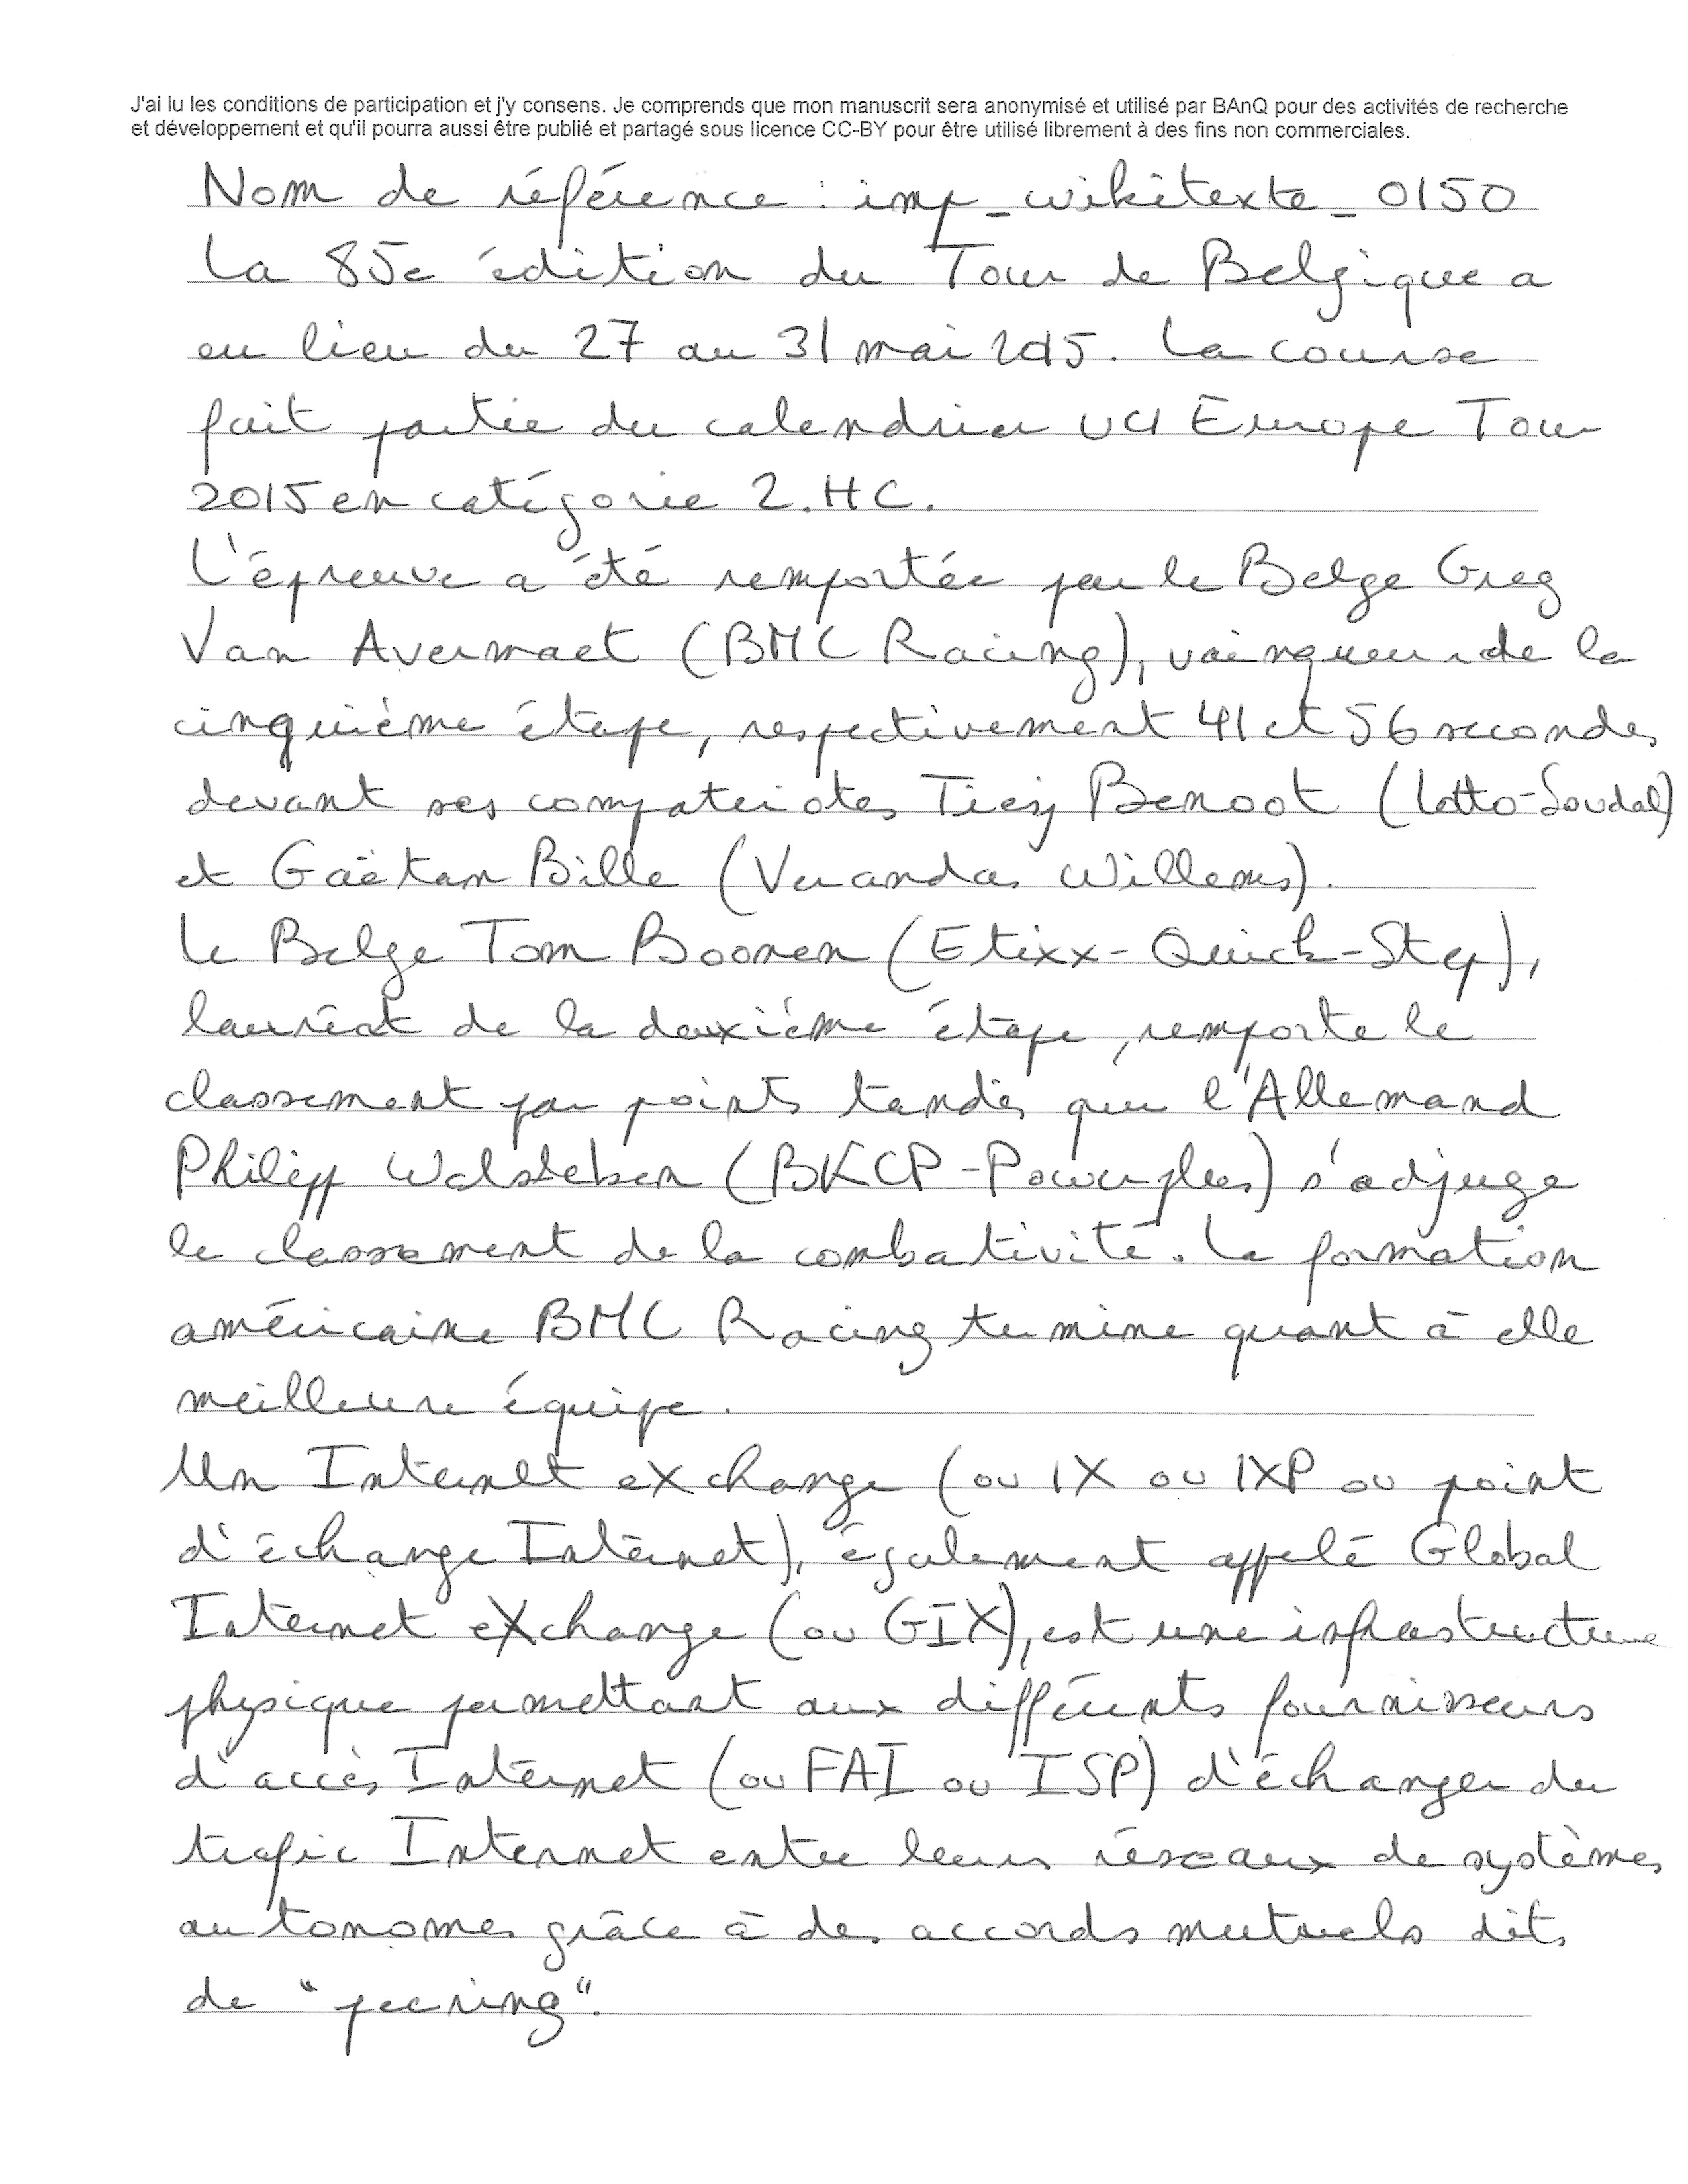 J'ai lu les conditions de participation et j'y consens. Je comprends que mon manuscrit sera anonymisé et utilisé par BAnQ pour des activités de recherche
et développement et qu'il pourra aussi être publié et partagé sous licence CC-BY pour être utilisé librement à des fins non commerciales.
Nom de référence : imp_wikitexte_0150
La 85e édition du Tour de Belgique a
eu lieu du 27 au 31 mai 2015. La course
fait partie du calendrier UCI Europe Tour
2015 en catégorie 2.HC.
L'épreuve a été remportée par le Belge Greg
Van Avermaet (BMC Racing), vainqueur de la
cinquième étape, respectivement 41 et 56 secondes
devant ses compatriotes Tiesj Benoot (Lotto-Soudal)
et Gaëtan Bille (Verandas Willems).
Le Belge Tom Boonen (Etixx-Quick-Step),
lauréat de la deuxième étape, remporte le
classement par points tandis que l'Allemand
Philipp Walsleben (BKCP-Powerplus) s'adjuge
le classement de la combativité. La formation
américaine BMC Racing termine quant à elle
meilleure équipe.
Un Internet eXchange (ou IX ou IXP ou point
d'échange Internet), également appelé Global
Internet eXchange (ou GIX), est une infrastructure
physique permettant aux différents fournisseurs
d'accès Internet (ou FAI ou ISP) d'échanger du
trafic Internet entre leurs réseaux de systèmes
autonomes grâce à des accords mutuels dits
de "peering".